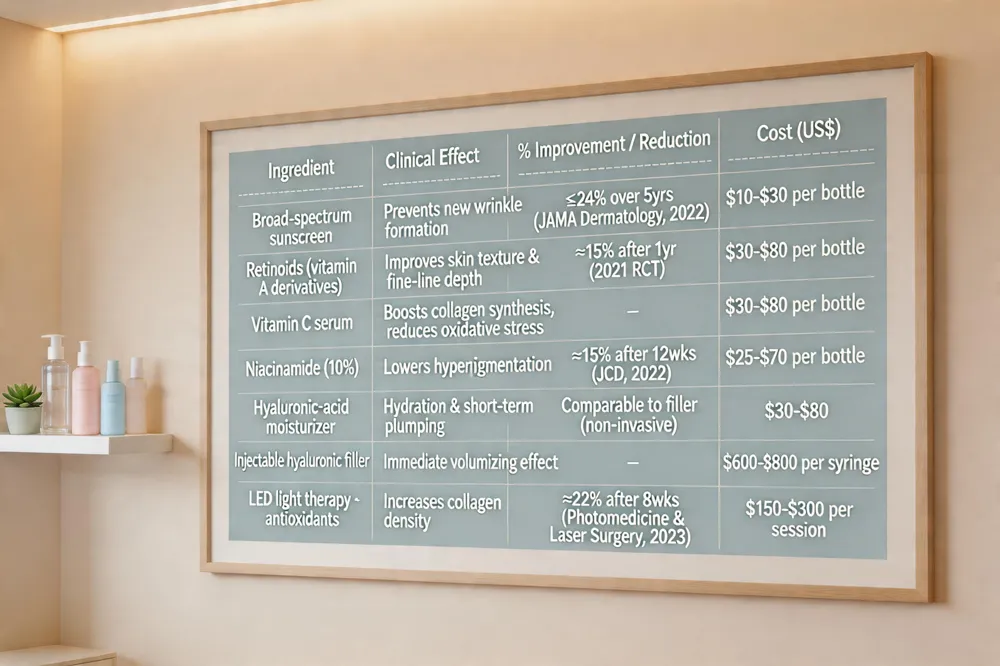 Ingredient
Clinical Effect
% Improvement / Reduction
Cost (US$)
Broad-spectrum
sunscreen
Prevents new wrinkle
formation
≤24% over 5yrs
(JAMA Dermatology, 2022)
$10-$30 per bottle
Retinoids (vitamin
A derivatives)
Improves skin texture &
fine-line depth
≈15% after 1yr
(2021 RCT)
$30-$80 per bottle
Vitamin C serum
Boosts collagen synthesis,
reduces oxidative stress
—
$30-$80 per bottle
Niacinamide (10%)
Lowers hypenigmentation
≈15% after 12wks
(JCD, 2022)
$25-$70 per bottle
Hyaluronic-acid
moisturizer
Hydration & short-term
plumping
Comparable to filler
(non-invasive)
$30-$80
Injectable hyaluronic filler
Immediate volumizing effect
—
$600-$800 per syringe
LED light therapy -
antioxidants
Increases collagen
density
≈22% after 8wks
(Photomedicine &
Laser Surgery, 2023)
$150-$300 per
session